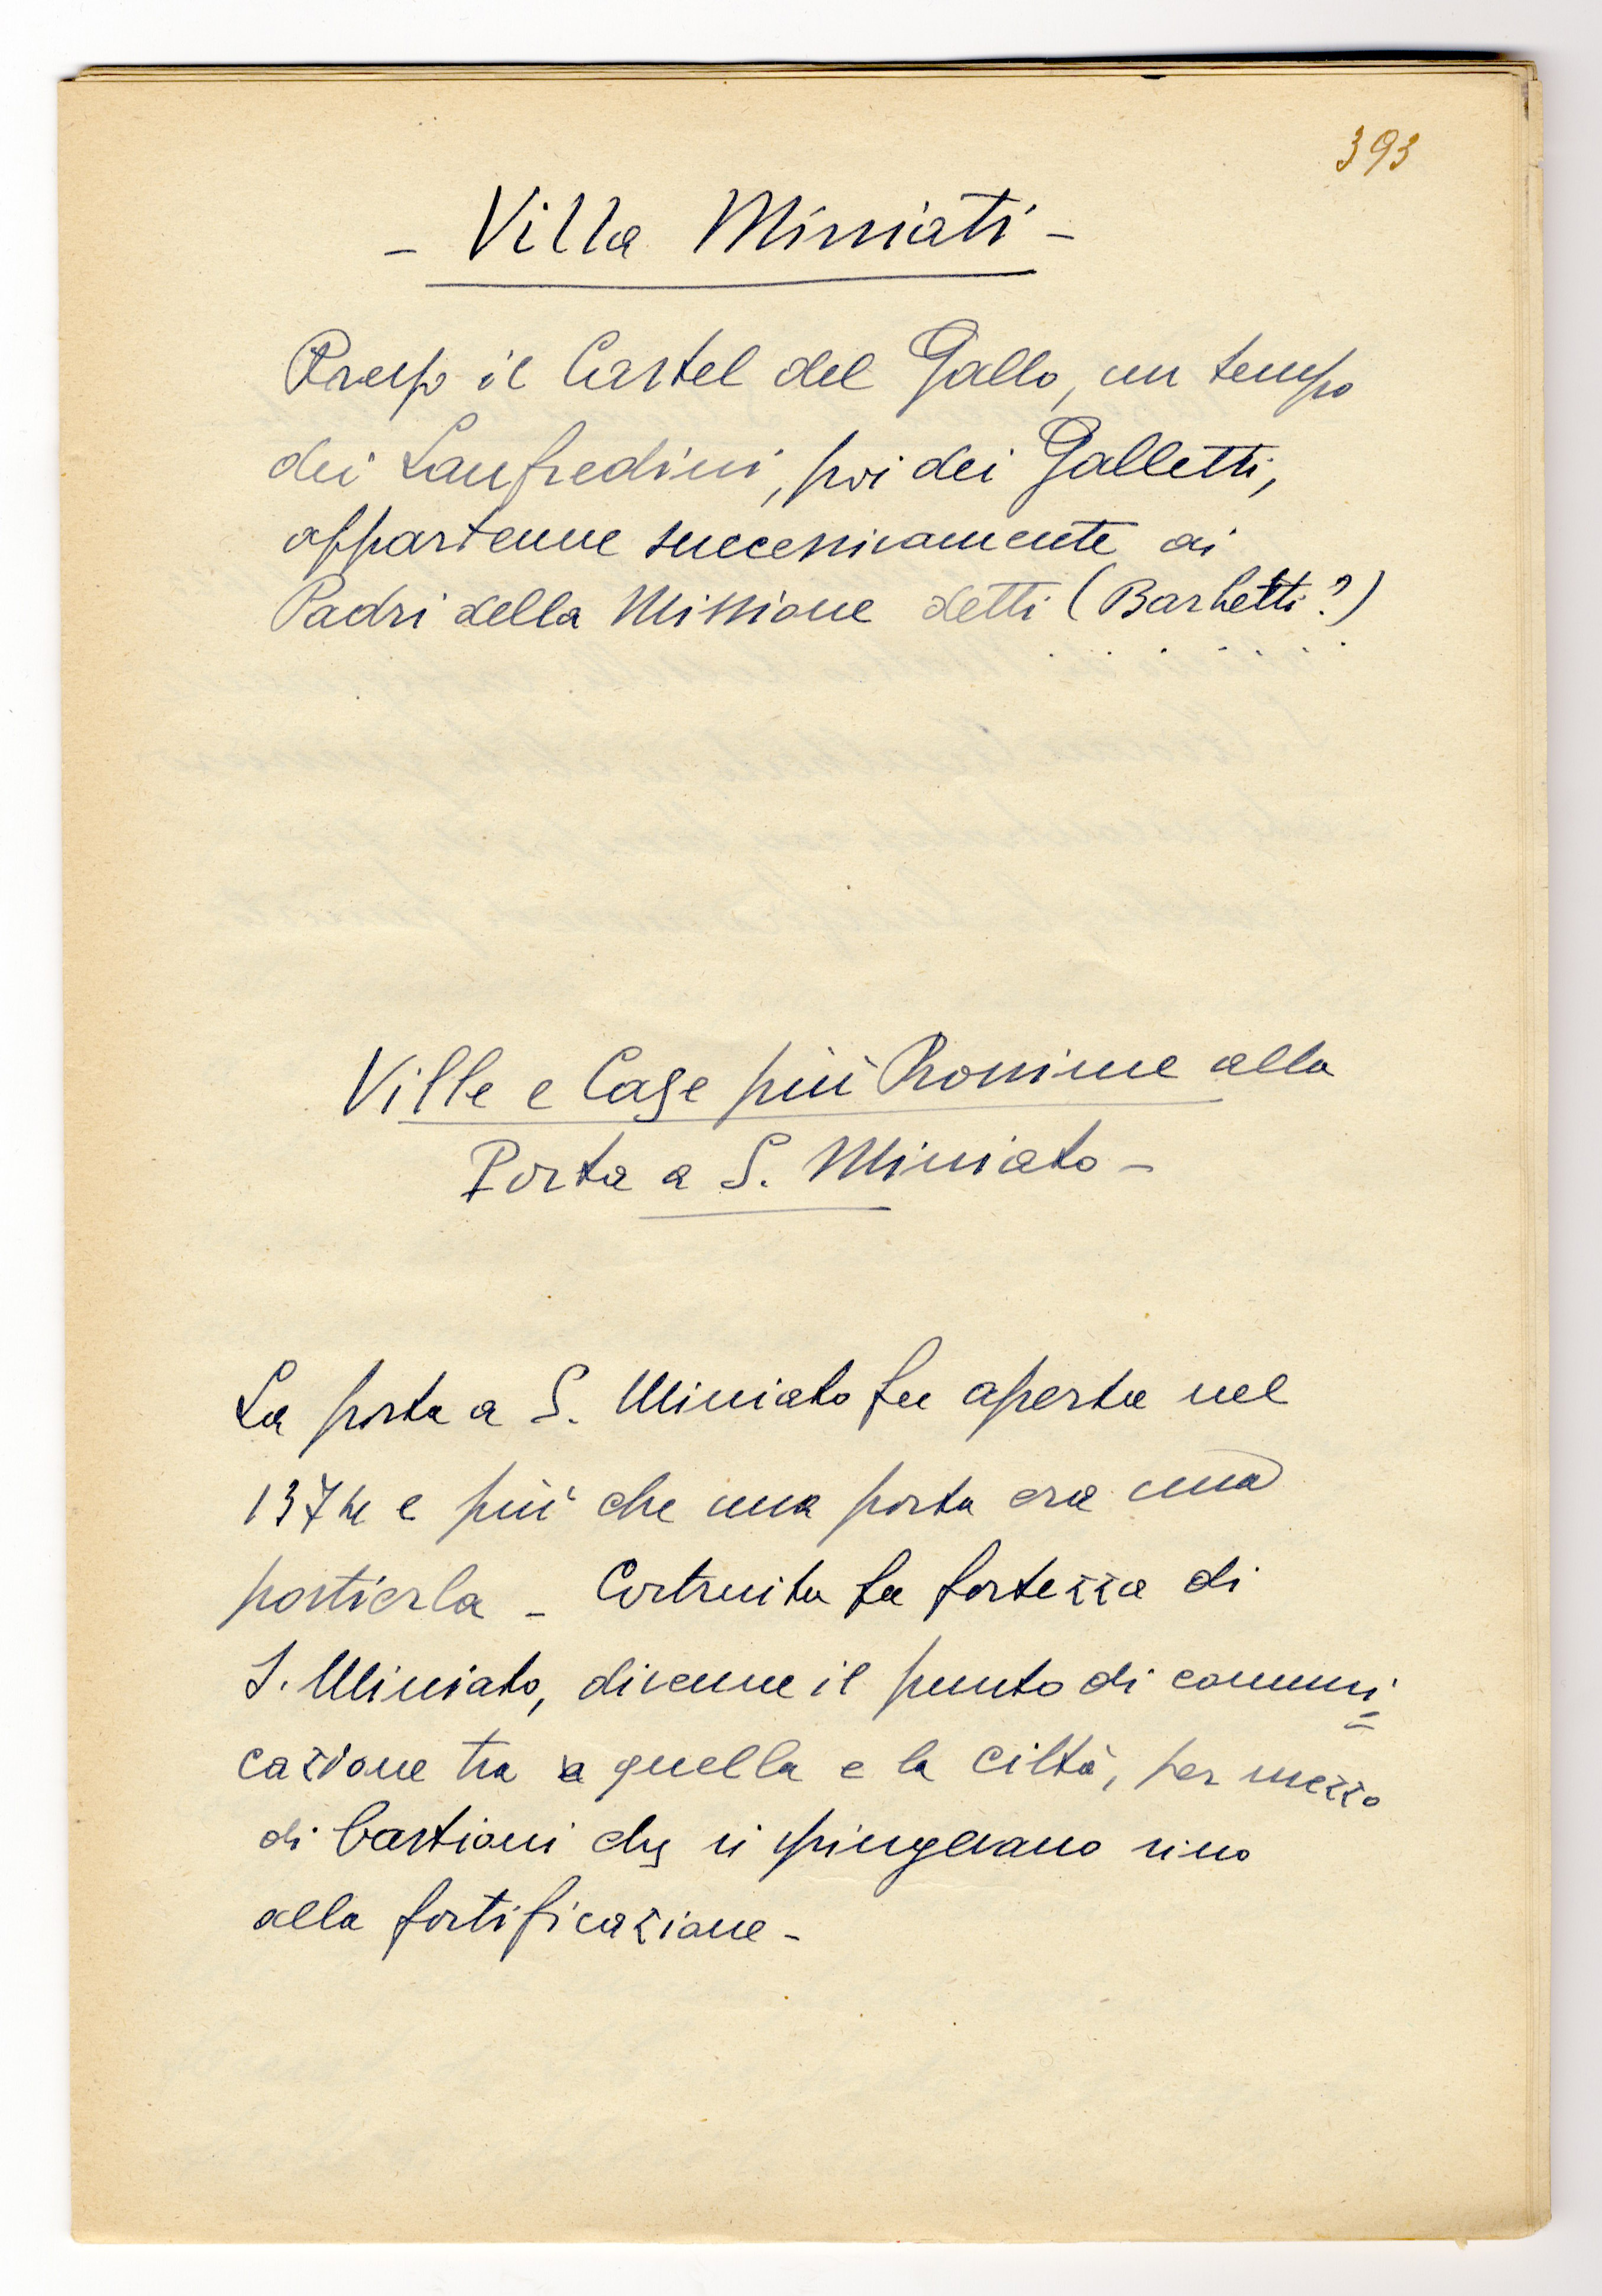 393
- Villa Miniati -
Presso il Castel del Gallo, un tempo
dei Lanfredini, poi dei Galletti,
appartenne successivamente ai
Padri della Missione detti (Barbetti?)
Ville e Case più Prossime alla
Porta a S. Miniato -
La porta a S. Miniato fu aperta nel
e più che una porta era una
postierla - Costruita la fortezza di
S. Miniato, divenne il punto di comuni=
cazione tra quella e la città, per mezzo
di bastioni che si spingevano sino
alla fortificazione -